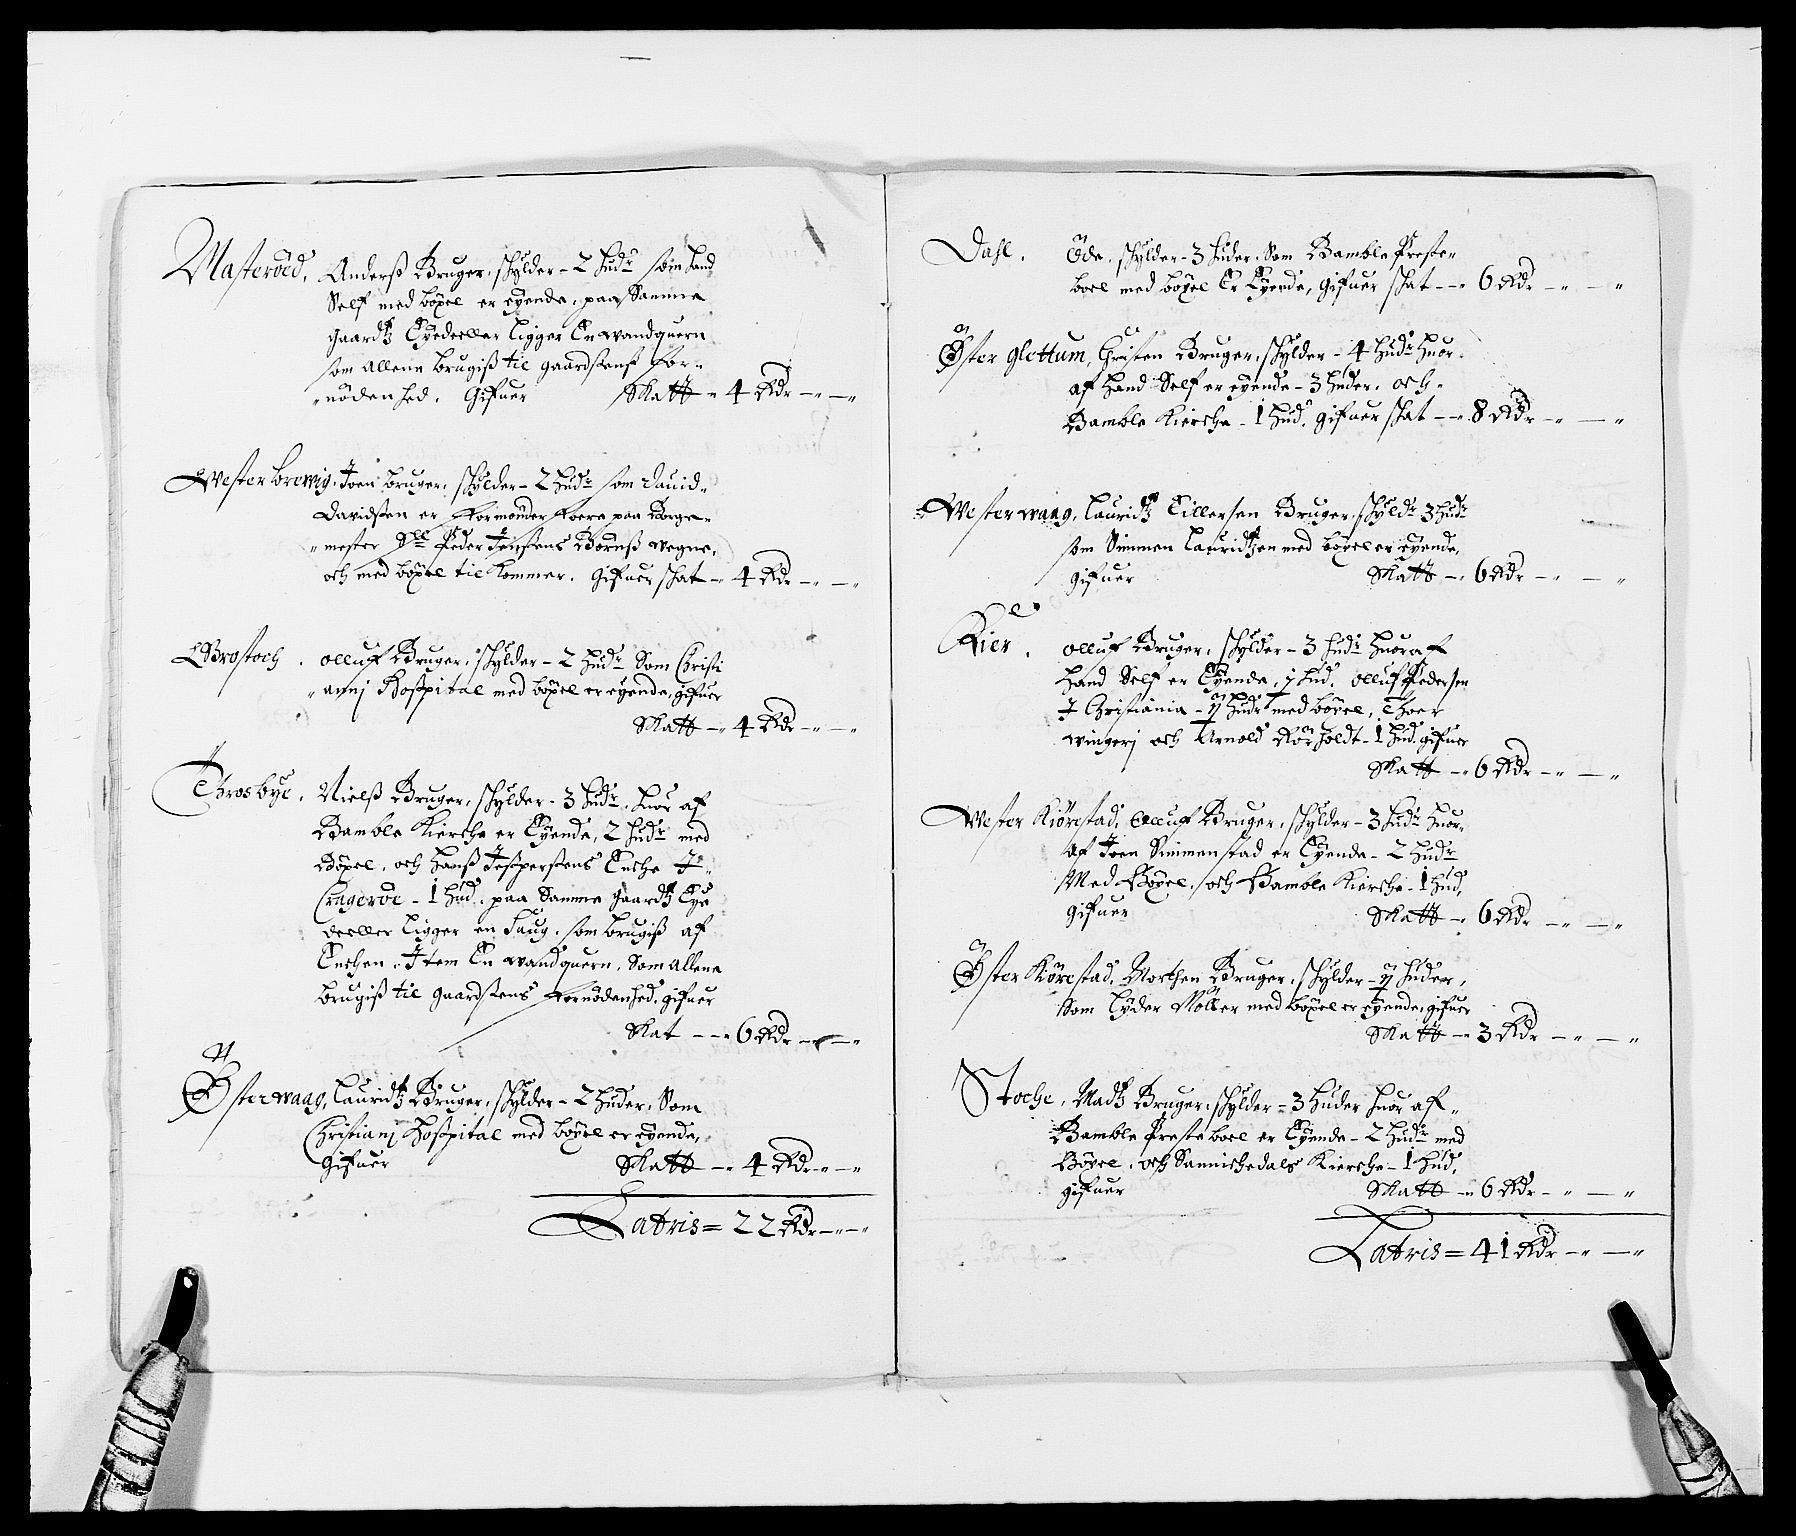 Masteröed. Anderß Bruger, schylder – 2 hudr som hand
Self med böxel er eyende, paa Samme
gaardtz Eyedeeller ligger En wandquern
som allene brugiß til gaardsens for-
nödenhed. Gifuer Skatt – 4 Rdr – „ – „
Wester brewig. Joen bruger, schylder – 2 hudr som david
Davidsen er formönder foere paa Borge-
mester Sl Peder Jensens Börnß wegne,
och med böxel til kommer. Gifuer schat – 4 Rdr – „ – „
Grostoch. olluf Bruger, schylder – 2 hudr Som Christi
anj Hoßpital med böxel er eyende, gifuer
Skatt – 4 Rdr – „ – „
Throsbye. Nielß Bruger, schylder – 3 hudr, huor af
Bamble Kierche er Eyende, 2 hudr med
Böxel, och hanß Jeßpersens Enche J
Crageröe – 1 hud. paa Samme gaardtz Eye
deeller ligger en Saug, som brugiß af
Enchen. Item En wandquern, Som allene
brugiß til gaardsens fornödenhed. gifuer
Skat – 6 Rdr – „ – „
Öster waag, Lauridtz Bruger, schylder – 2 huder, Som
Christianj Hoßpital med böxel er eyende,
Gifuer Skatt – 4 Rdr – „ – „
Latris = 22 Rdr – „ – „
Dahl. Öde, schylder – 3 huder. Som Bamble Preste-
boel med böxel Er Eyende, gifuer schat – 6 Rdr – „ – „
Öster glottum, Christen Bruger, schylder – 4 hudr huor
af hand Self er eyende – 3 huder. och
Bamble Kierche – 1 hud. gifuer schat – 8 Rdr – „ – „
Wester waag, Lauridtz Eillersen Bruger, schyldr 3 hudr
som Simmen Lauridtzen med böxel er eyende,
gifuer Skatt – 6 Rdr – „ – „
Kier. olluf Bruger, schylder – 3 hudr huor af
hand Self er Eyende, ½ hud. olluf Pedersen
J Christiania – ½ hudr med böxel, Thoer
wingerj och Arnold Rörholdt – 1 hud. gifuer
Skatt – 6 Rdr – „ – „
Wester Kiörestad, Olluf Bruger, schylder – 3 hudr huor
af Joen Simmenstad er Eyende – 2 hudr
Med Böxel, och Bamble Kierche – 1 hud,
gifuer Skatt – 6 Rdr – „ – „
Öster Kiörestad, Morthen Bruger, schylder – ½ huder,
Som Lyder Möller med böxel er eyende, gifuer
Skatt – 3 Rdr – „ – „
Stoche, Madtz Bruger, schylder – 3 huder huor af
Bamble Preste boel er Eyende – 2 hudr med
Böxel, och Sannichedals Kierche – 1 hud,
gifuer Skatt – 6 Rdr – „ – „
Latris = 41 Rdr – „ – „